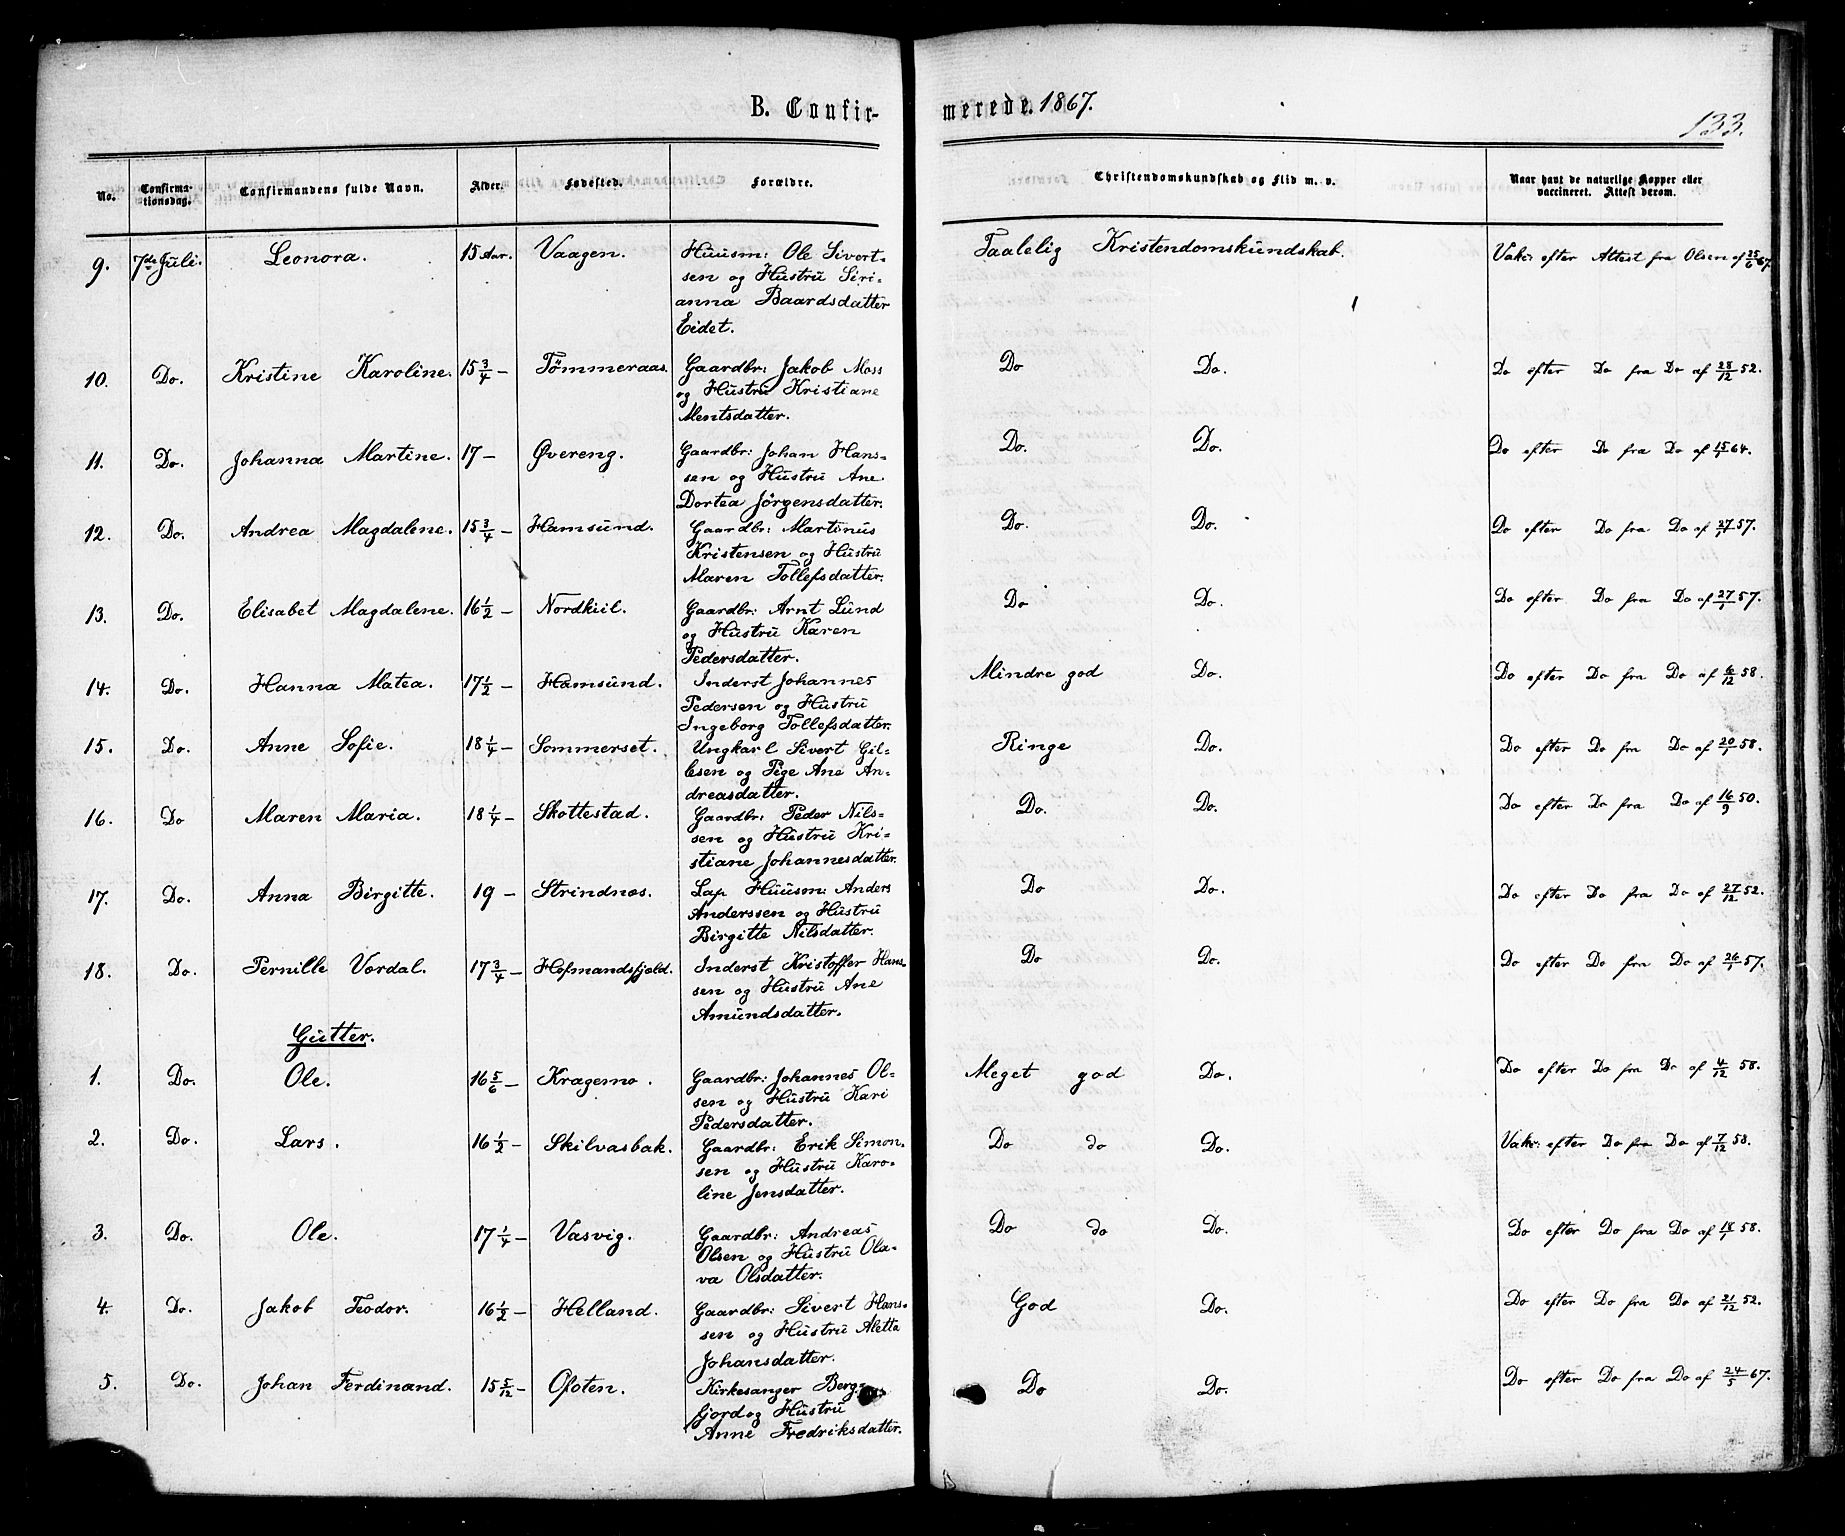 B. Confir-
merede. 1867.
133.
No.
Confirma-
tionsdag.
Confirmandens fulde Navn.
Alder.
Fødested.
Forældre.
Christendomskundskab og Flid m. v.
Naar havt de naturlige Kopper eller
vaccineret. Attest derom.
9. 7de Juli. Leonora. 15 Aar. Vaagen. Huusm: Ole Sivert- Taalelig Kristendomskundskab. Vak: efter Attest fra Olsen af 25/6 67.
sen og Hustru Siri-
anna Baardsdatter
Eidet.
10. Do. Kristine Karoline. 15 3/4 – Tømmeraas. Gaardbr: Jakob Moss Do Do. Do efter Do fra Do af 28/12 52.
og Hustru Kristiane
Mentsdatter.
11. Do. Johanna Martine. 17 – Øvereng. Gaardbr: Johan Hans- Do. Do. Do efter Do fra Do af 15/1 64.
sen og Hustru Ane
Dortea Jørgensdatter.
12. Do. Andrea Magdalene. 15 3/4 – Hamsund. Gaardbr: Martinus Do. Do. Do efter Do fra Do af 27/1 57.
Kristensen og Hustru
Maren Tollefsdatter.
13. Do. Elisabet Magdalene. 16 1/2 – Nordkiil. Gaardbr: Arnt Lund Do Do. Do efter Do fra Do af 27/1 57.
og Hustru Karen
Pedersdatter.
14. Do. Hanna Matea. 17 1/2 – Hamsund. Inderst Johannes Mindre god Do. Do efter Do fra Do af 6/12 58.
Pedersen og Hustru
Ingeborg Tollefsdatter.
15. Do. Anne Sofie. 18 1/4 – Sommerset. Ungkarl Sivert Gil- Ringe Do. Do efter Do fra Do af 20/1 58.
besen og Pige Ane An-
dreasdatter.
16. Do Maren Maria. 18 1/4 – Skottestad. Gaardbr: Peder Nils- Do. Do. Do efter Do fra Do af 16/9 50.
sen og Hustru Kri-
stiane Johannesdatter.
17. Do. Anna Birgitte. 19 – Strindnæs. Lap Huusm: Anders Do Do. Do efter Do fra Do af 27/12 52.
Anderssen og Hustru
Birgitte Nilsdatter.
18. Do. Pernille Vordal. 17 3/4 – Hofmandsfjeld. Inderst Kristoffer Hans- Do Do. Do efter Do fra Do af 26/1 57.
sen og Hustru Ane
Amundsdatter.
Gutter.
1. Do. Ole. 16 5/6 – Kragemo. Gaardbr: Johannes Ol- Meget god Do. Do efter Do fra Do af 4/12 58.
sen og Hustru Kari
Pedersdatter.
2. Do. Lars. 16 1/2 – Skilvasbak. Gaardbr: Erik Simon- Do do Do. Vak: efter Do fra Do af 7/12 58.
sen og Hustru Karo-
line Jensdatter.
3. Do. Ole. 17 1/4 – Vasvig. Gaardbr: Andreas Do do Do. Do efter Do fra Do af 18/1 58.
Olsen og Hustru Ola-
va Olsdatter.
4. Do. Jakob Teodor. 16 1/2 – Helland. Gaardbr: Sivert Hans- God Do. Do efter Do fra Do af 21/12 52.
sen og Hustru Aletta
Johansdatter.
5. Do. Johan Ferdinand. 15 5/12 – Ofoten. Kirkesanger Berg- Do Do. Do efter Do fra Do af 24/5 67.
fjord og Hustru
Anne Fredriksdatter.